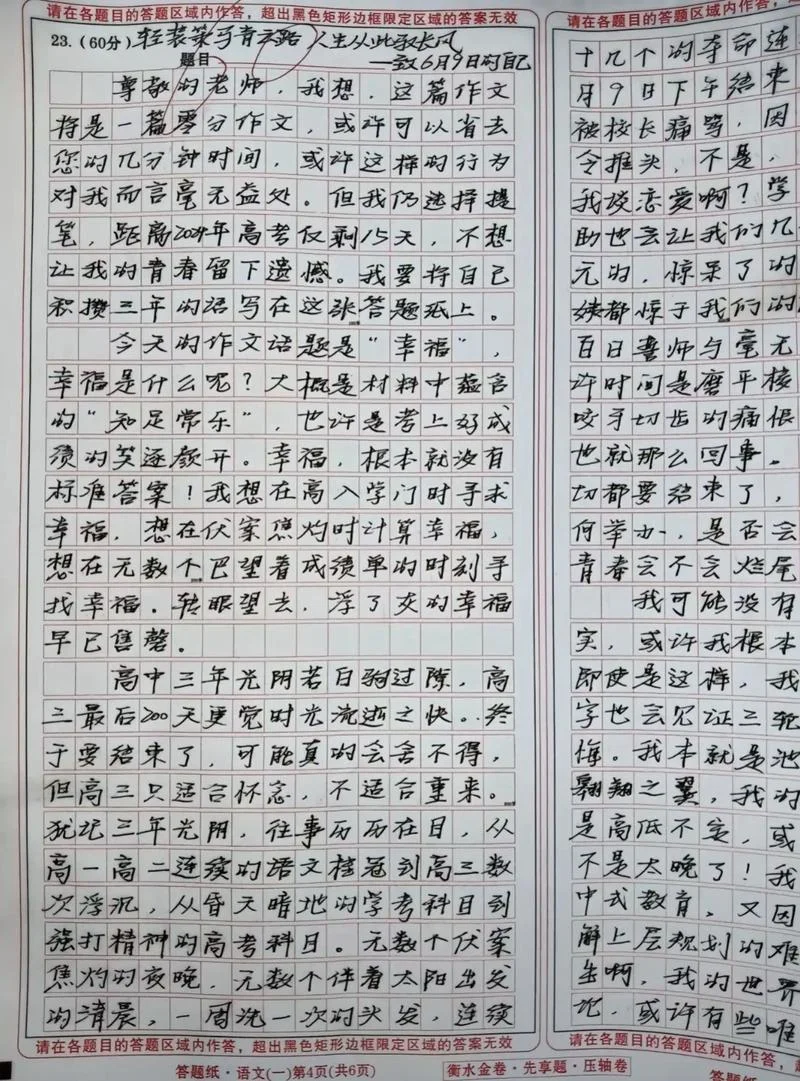 请在各题目的答题区域内作答，超出黑色矩形边框限定区域的答案无效
23.（60分）轻装策马青云路 人生从此驭长风
题目
——致6月9日的自己
尊敬的老师，我想，这篇作文
将是一篇零分作文，或许可以省去
您的几分钟时间，或许这样的行为
对我而言毫无益处。但我仍选择提
笔，距离2024年高考仅剩15天，不想
让我的青春留下遗憾。我要将自己
积攒三年的话写在这张答题纸上。
今天的作文话题是“幸福”，
幸福是什么呢？大概是材料中蕴含
的“知足常乐”，也许是考上好成
绩的笑逐颜开。幸福，根本就没有
标准答案！我想在高入学门时寻求
幸福，想在伏案焦灼时计算幸福，
想在无数个巴望着成绩单的时刻寻
找幸福。转眼望去，浮了灰的幸福
早已售罄。
高中三年光阴若白驹过隙，高
三最后200天更觉时光流逝之快。终
于要结束了，可能真的会舍不得，
但高三只适合怀念，不适合重来。
犹记三年光阴，往事历历在目，从
高一高二连续的语文桂冠到高三数
次浮沉，从昏天暗地的学考科目到
强打精神的高考科目。无数个伏案
焦灼的夜晚，无数个伴着太阳出发
的清晨，一周洗一次的头发，连续
请在各题目的答题区域内作答，超出黑色矩形边框限定区域的答案无效
答题纸·语文(一)第4页(共6页)
衡水金卷·先享题·压轴卷
请在各题目的答题区域内作
十几个的夺命连
月9日下午结束
被校长痛骂，因
令推头，不是，
我谈恋爱啊？学
助也会让我们几
元的，惊呆了的
姨都惊于我们的
百日誓师与毫无
许时间是磨平棱
咬牙切齿的痛恨
也就那么回事。
切都要结束了，
何举办，是否会
青春会不会烂尾
我可能没有
实，或许我根本
即使是这样，我
字也会见证三轮
悔。我本就是池
翱翔之翼，我的
是高低不妄，或
不是太晚了！我
中式教育，又因
解上层规划的难
生啊，我的世界
记，或许有些唯
请在各题目的答题区域内作
答题纸·